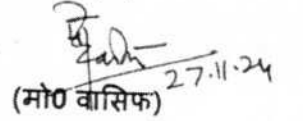 27.11.24
(मो0 वासिफ)